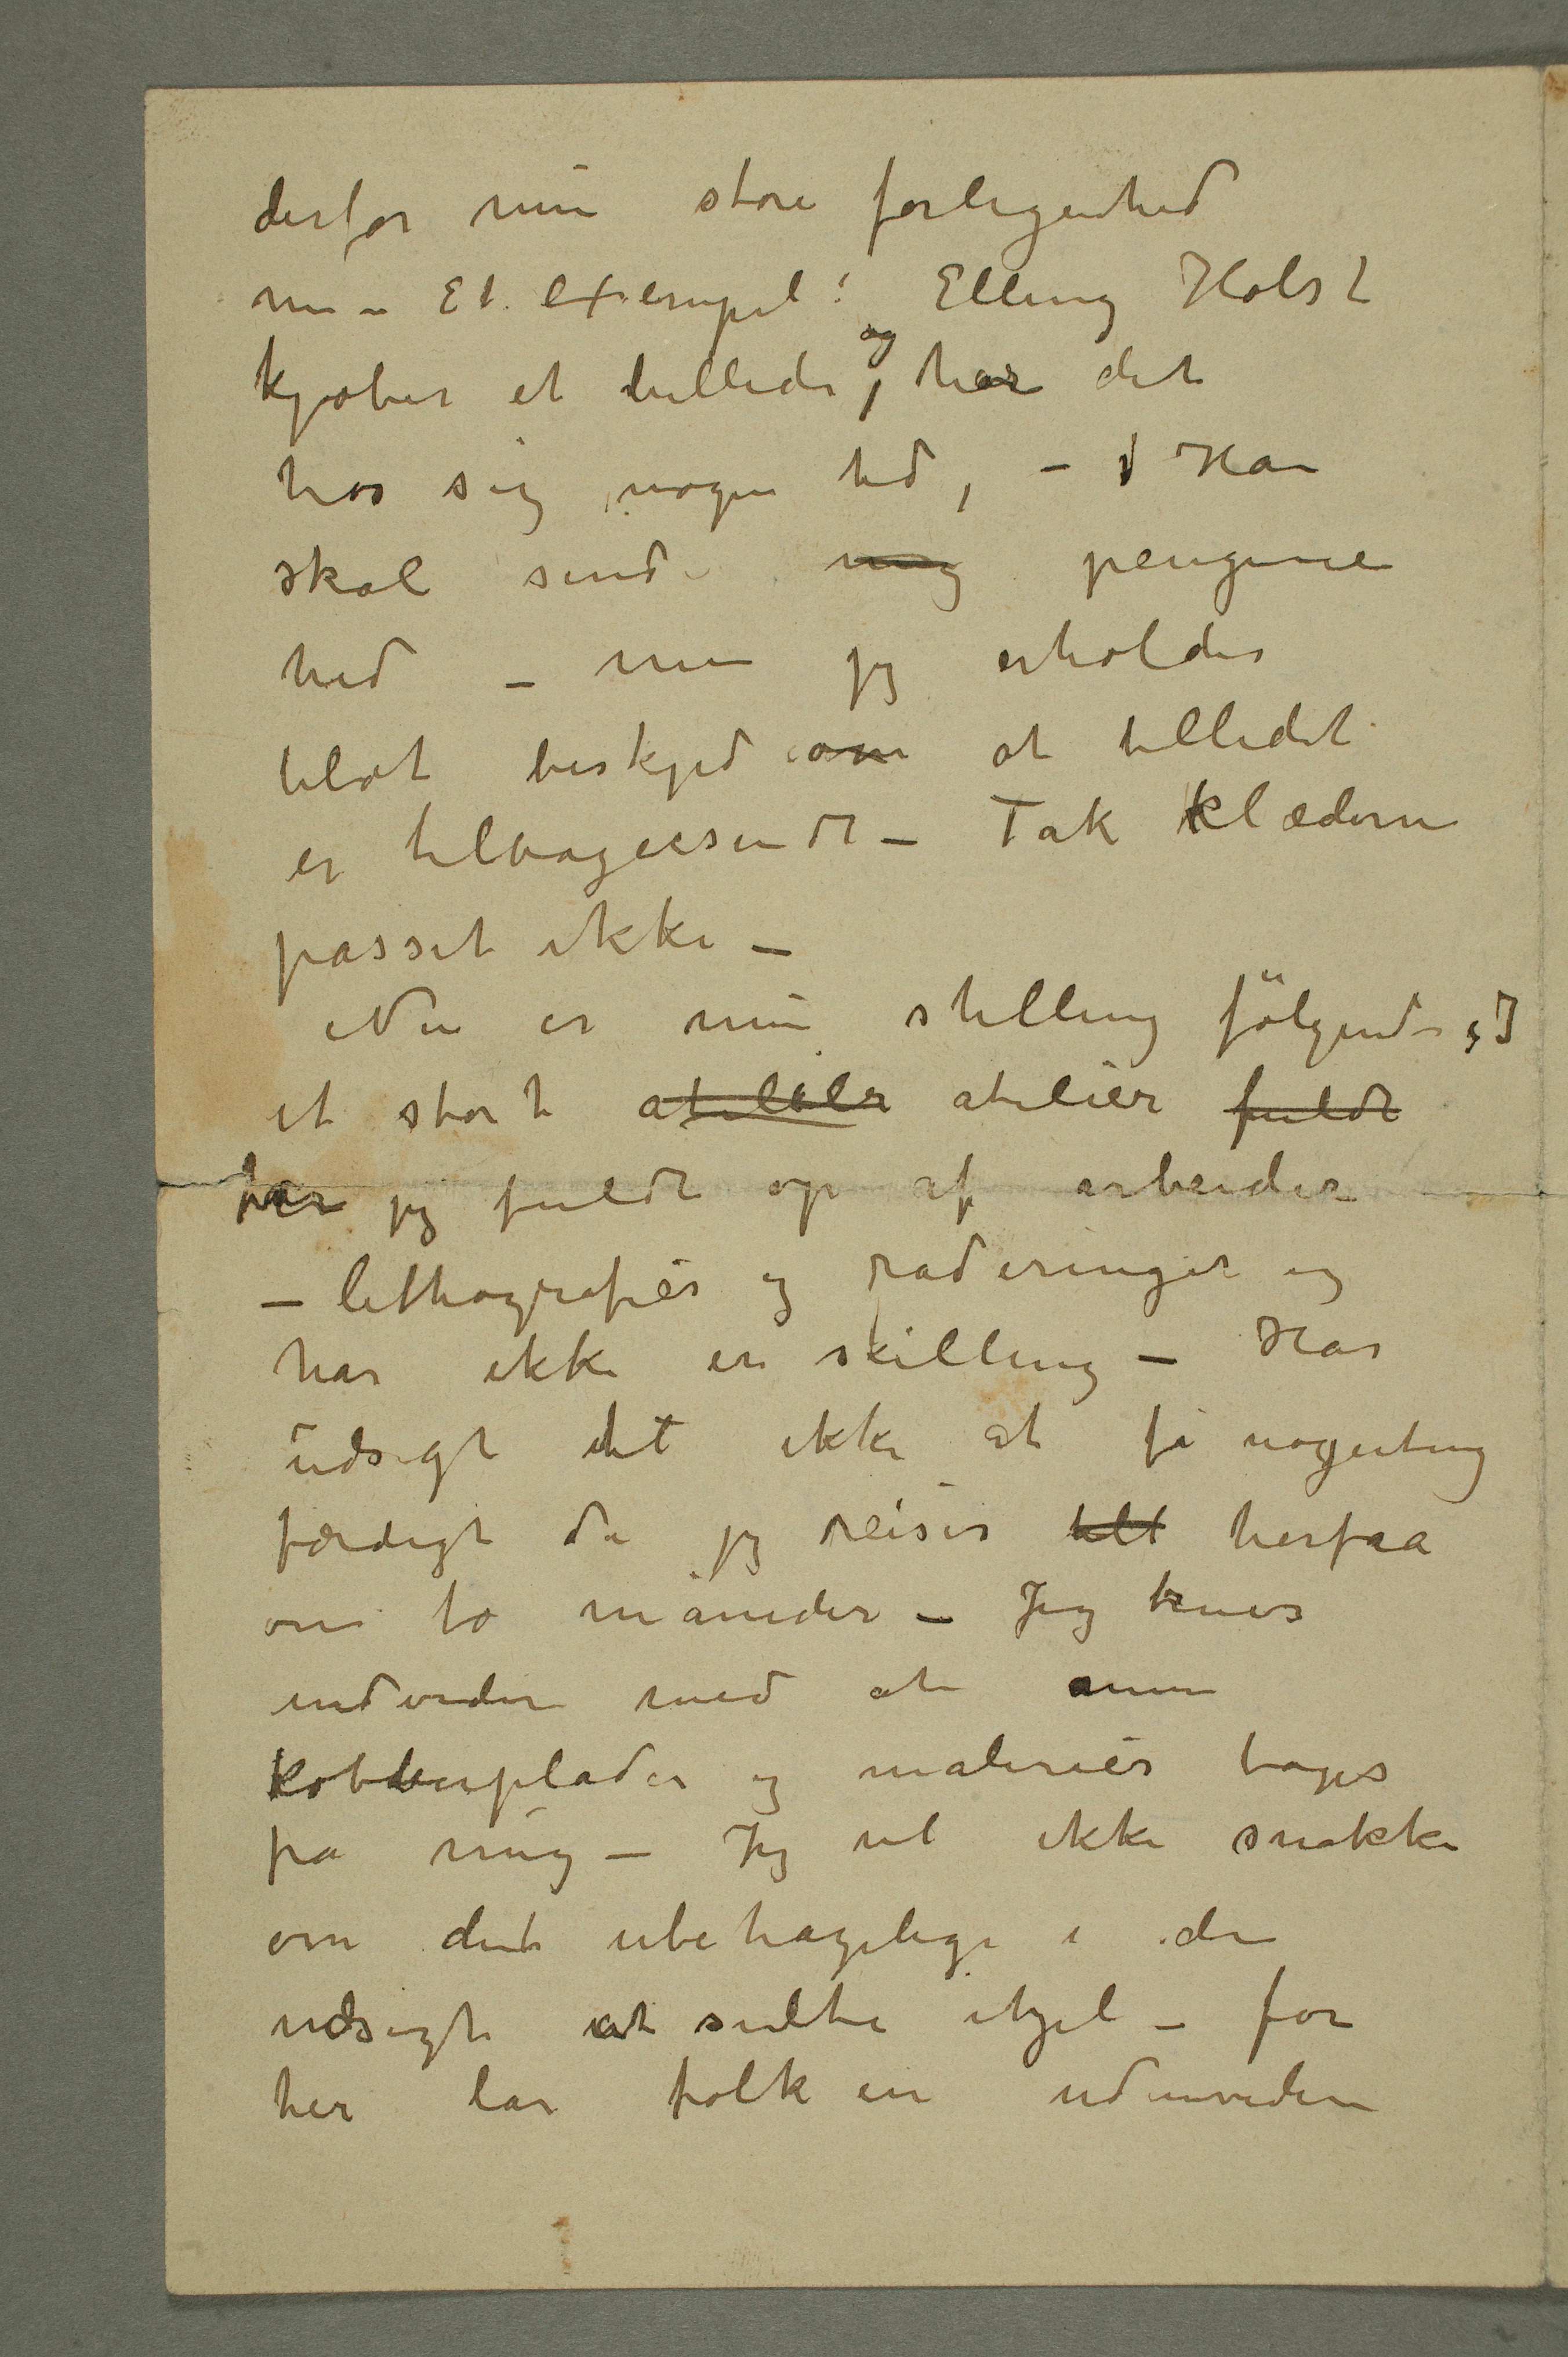 derfor min store forlegenhed
nu – Et exempel: Elling Holst
kjøber et billede, og har det
hos sig nogen tid, – Han
skal sende mig pengene
hid – men jeg erholder
blot beskjed om at billedet
er tilbagesendt – Tak klæderne
passet ikke –
Nu er min stilling følgende, I
et stort atelier fuldt
har jeg fuldt op af arbeider
– lithografier og raderinger og
har ikke en skilling – Har
udsigt til ikke at få nogenting
færdigt da jeg reiser herfra
om to måneder – Jeg trues
endvidere med at mine
kobberplader og malerier tages
fra mig – Jeg vil ikke snakke
om det ubehagelige i den
udsigt at sulte ihjel – for
her lar folk en udenvidere